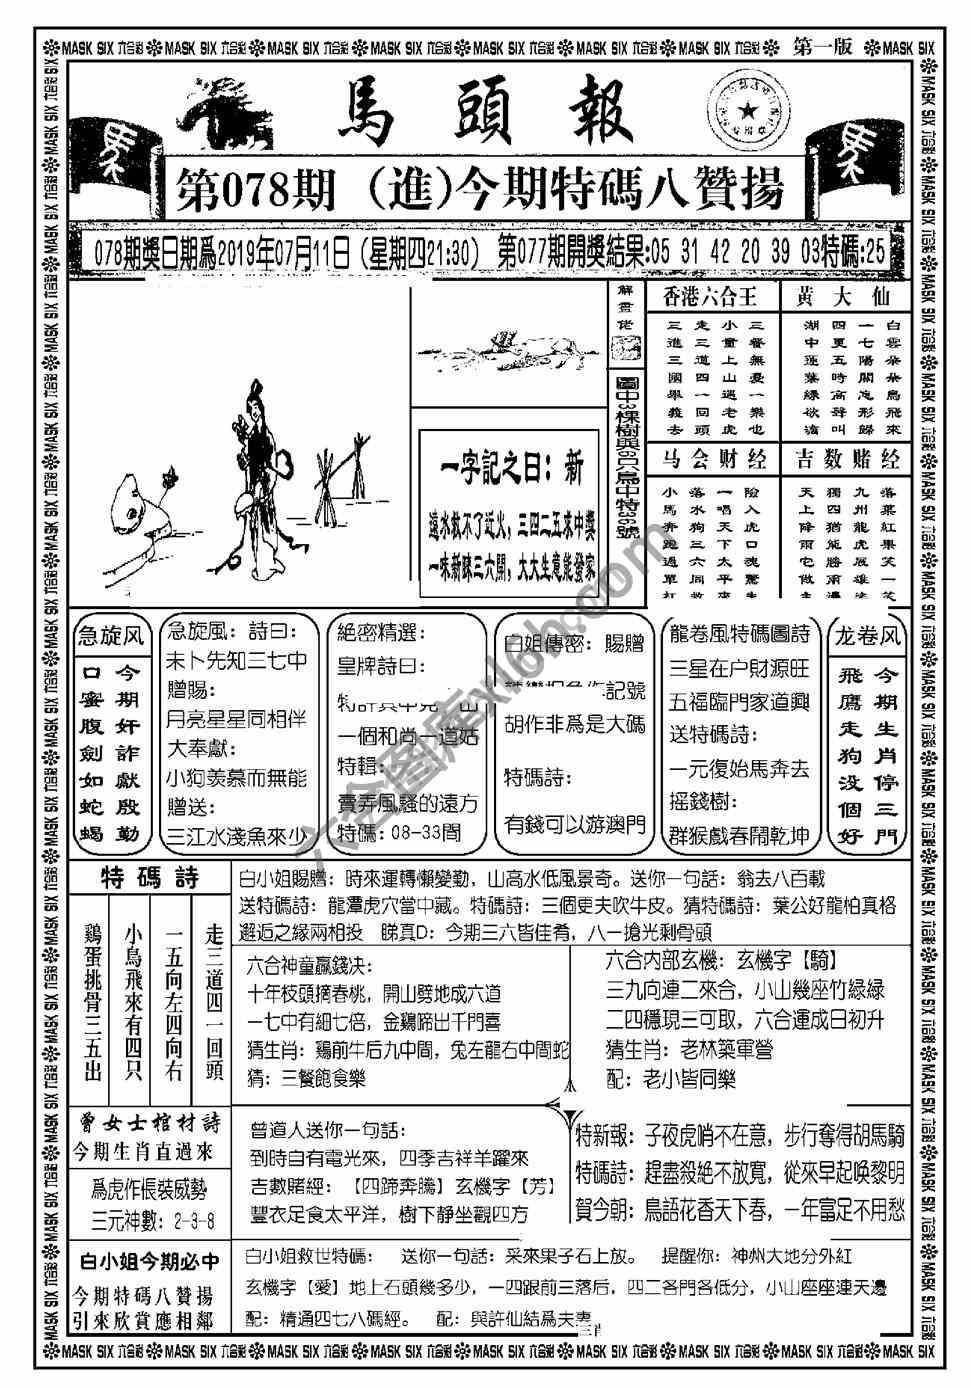 MASK SIX 六合彩 MASK SIX 六合彩 MASK SIX 六合彩 MASK SIX 六合彩 MASK SIX 六合彩 MASK SIX 六合彩 MASK SIX 六合彩 第一版 MASK SIX
馬頭報
第078期（進)今期特碼八贊揚
078期獎日期爲2019年07月11日（星期四21:30） 第077期開獎結果:05 31 42 20 39 03特碼:25
一字記之曰：新
遠水救不了近火，三四二五來中獎
一味新睞三六開，大大生意能發家
圖中3棵樹與6只鳥中特36號
香港六合王
三餐無憂一樂也
小童上山遇老虎
走三道四一回頭
三進三國舉義去
黃大仙
白雲朵朵鳥飛來
一七陽關忘形歸
四更五時高聲叫
湖中蓬葉綠欲滴
马会财经
險入虎口魂驚
一唱天下太平
落水狗三六同
小馬奔跑過單
吉数赌经
落葉紅果笑一笑
九州龍虎風雄
獨四猶能勝虎
天上降雨它做
急旋风
今期奸詐獻殷勤
口蜜腹劍如蛇蝎
急旋風：詩曰：
未卜先知三七中
贈賜：
月亮星星同相伴
大奉獻：
小狗羨慕而無能
贈送：
三江水淺魚來少
絕密精選：
皇牌詩曰：
一個和尚一道姑
特輯：
賣弄風騷的遠方
特碼：08-33間
白姐傳密：賜贈
記號
胡作非爲是大碼
特碼詩：
有錢可以游澳門
龍卷風特碼圖詩
三星在户財源旺
五福臨門家道興
送特碼詩：
一元復始馬奔去
摇錢樹：
群猴戲春鬧乾坤
龙卷风
今期生肖停三門
飛鷹走狗没個好
特碼詩
走三道四一回頭
一五向左四向右
小鳥飛來有四只
鷄蛋挑骨三五出
白小姐賜贈：時來運轉懶變勤，山高水低風景奇。送你一句話：翁去八百載
送特碼詩：龍潭虎穴當中藏。特碼詩：三個更夫吹牛皮。猜特碼詩：葉公好龍怕真格
邂逅之緣兩相投　睇真D：今期三六皆佳肴，八一搶光剩骨頭
六合神童贏錢決：
十年枝頭摘春桃，開山劈地成六道
一七中有細七倍，金鷄啼出千門喜
猜生肖：鷄前牛后九中間，兔左龍右中間蛇
猜：三餐飽食樂
六合内部玄機：玄機字【騎】
三九向連二來合，小山幾座竹緑緑
二四穩現三可取，六合運成日初升
猜生肖：老林築軍營
配：老小皆同樂
曾女士棺材詩
今期生肖直過來
爲虎作倀裝威勢
三元神數：2-3-8
曾道人送你一句話：
到時自有電光來，四季吉祥羊躍來
吉數賭經：【四蹄奔騰】玄機字【芳】
豐衣足食太平洋，樹下靜坐觀四方
特新報：子夜虎哨不在意，步行奪得胡馬騎
特碼詩：趕盡殺絕不放寬，從來早起唤黎明
賀今朝：鳥語花香天下春，一年富足不用愁
白小姐今期必中
今期特碼八贊揚
引來欣賞應相鄰
白小姐救世特碼：　送你一句話：采來果子石上放。　提醒你：神州大地分外紅
玄機字【愛】地上石頭幾多少，一四跟前三落后，四二各門各低分，小山座座連天邊
配：精通四七八碼經。　配：與許仙結爲夫妻
三肖
六合图库x16h.com
MASK SIX 六合彩 MASK SIX 六合彩 MASK SIX 六合彩 MASK SIX 六合彩 MASK SIX 六合彩 MASK SIX 六合彩 MASK SIX 六合彩 MASK SIX 六合彩 MASK SIX